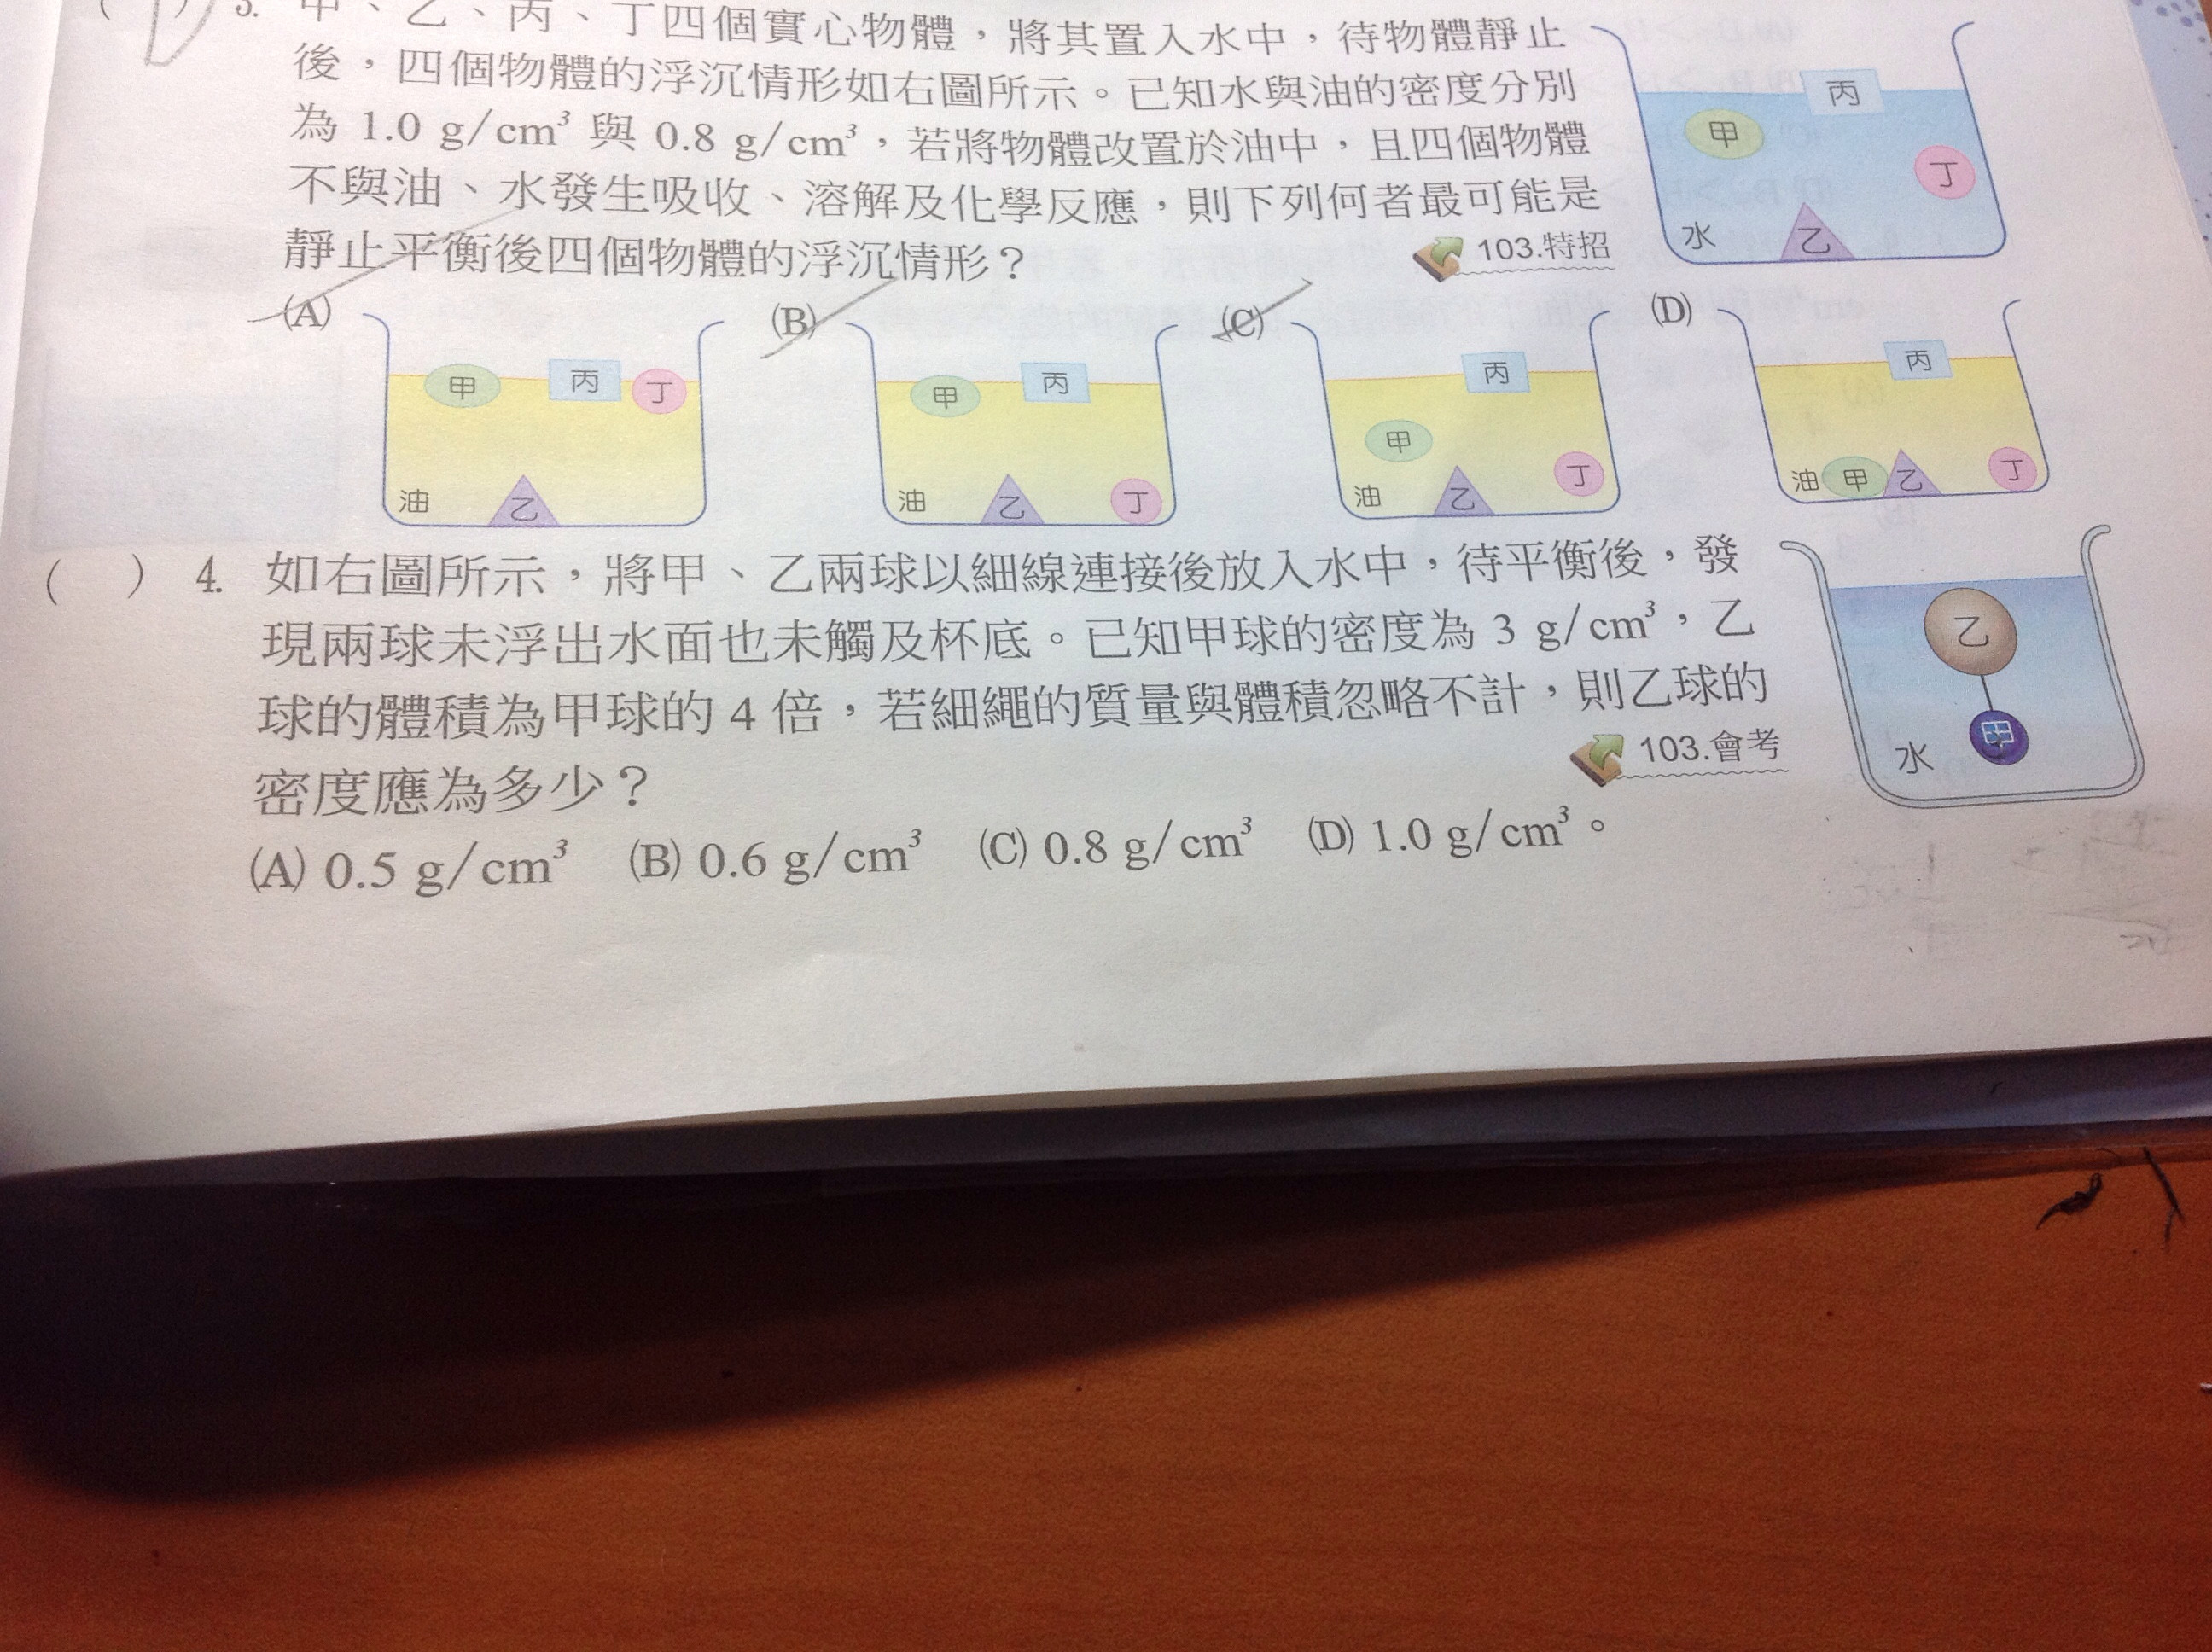 3. 甲、乙、丙、丁四個實心物體，將其置入水中，待物體靜止
後，四個物體的浮沉情形如右圖所示。已知水與油的密度分別
為 1.0 g/cm³ 與 0.8 g/cm³，若將物體改置於油中，且四個物體
不與油、水發生吸收、溶解及化學反應，則下列何者最可能是
靜止平衡後四個物體的浮沉情形？
103.特招
丙
甲
丁
水 乙
(A)
甲 丙 丁
油 乙
(B)
甲 丙
油 乙 丁
(C)
丙
甲
油 乙 丁
(D)
丙
油 甲 乙 丁
( ) 4. 如右圖所示，將甲、乙兩球以細線連接後放入水中，待平衡後，發
現兩球未浮出水面也未觸及杯底。已知甲球的密度為 3 g/cm³，乙
球的體積為甲球的 4 倍，若細繩的質量與體積忽略不計，則乙球的
密度應為多少？
103.會考
(A) 0.5 g/cm³ (B) 0.6 g/cm³ (C) 0.8 g/cm³ (D) 1.0 g/cm³。
乙
甲
水